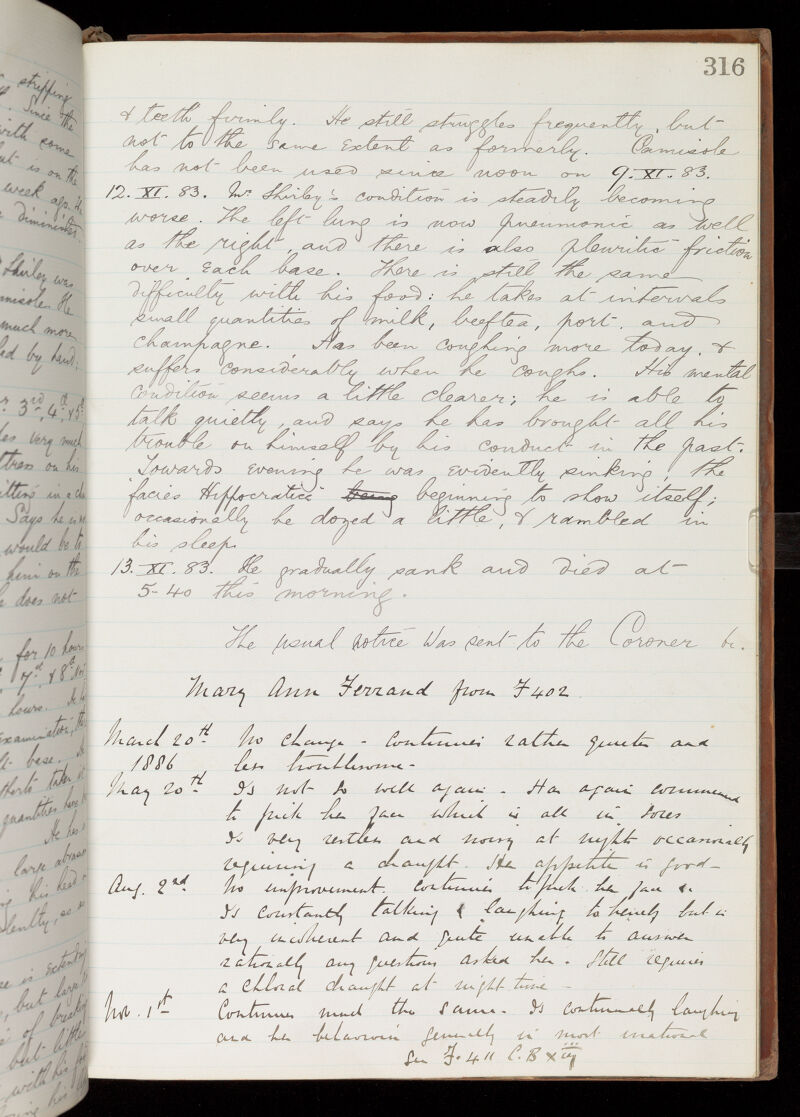 316
& teeth firmly. He still struggles frequently, but
not to the same extent as formerly. Camisole
has not been used since noon on 9.XI.83.
12.XI.83. Mr Shirley's condition is steadily becoming
worse. The left lung is now pneumonic as well
as the right, and there is also pleuritic friction
over each base. There is still the same
difficulty with his food: he takes at intervals
small quantities of milk, beeftea, port, and
champagne. Has been coughing more today, &
suffers considerably when he coughs. His mental
condition seems a little clearer; he is able to
talk quietly, and says he has brought all his
trouble on himself by his conduct in the past.
Towards evening he was evidently sinking, the
facies Hippocratica being beginning to show itself;
occasionally he dozed a little, & rambled in
his sleep.
13.XI.83. He gradually sank and died at
5-40 this morning.
The usual notice was sent to the Coroner &c.
Mary Ann Ferrand from F402
March 20th No change - continues rather quieter and
1886 less troublesome -
May 20th Is not so well again - Has again commenced
to pick her face which is all in sores
Is very restless and noisy at night occasionally
requiring a draught. Her appetite is good -
Aug. 2nd No improvement. Continues to pick her face &c
Is constantly talking & laughing to herself but is
very incoherent and quite unable to answer
rationally any questions asked her. Still requires
a chloral draught at night time -
Nov. 1st Continues much the same. Is continually laughing
and her behaviour generally is most irrational
See F. 411 C.B xiij
stripping
Since the
with some
is on the
week ago.
Shirley was
camisole. He
much more
fed by hand:
3rd, 4th, & 5th
very much
on his
Says he is
would be
him on the
does not
for 10 hours
7th & 8th
hours.
examination, the
base.
taken
quantities have
He has
large
his head
is extending
but
of
but little
with his
his